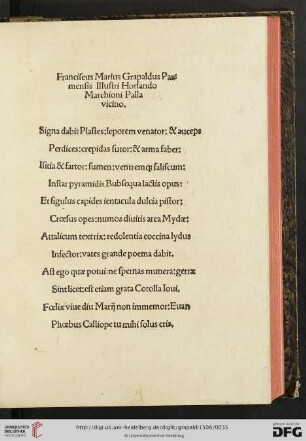 Franciscus Marius Grapaldus Par
mensis Illustri Horlando
Marchioni Palla
vicino.
Signa dabit Plastes: leporem venator: & auceps
Perdices: crepidas sutor: & arma faber:
Isitia & fartor: sumen: ventremq; faliscum:
Instar pyramidis Bubsequa lactis opus:
Et figulus capides ientacula dulcia pistor:
Crœsus opes: numos diuitis area Mydæ:
Attalicum textrix: redolentia coccina lydus
Infector: vates grande poema dabit,
Ast ego quæ potui: ne spernas munera: gerræ
Sint licet: est etiam grata Cotolla Ioui,
Fœlix viue diu Marij non immemor: Euan
Phœbus Calliope tu mihi solus eris,
UNIVERSITÄTS-
BIBLIOTHEK
HEIDELBERG
http://digi.ub.uni-heidelberg.de/diglit/grapaldi1508/0035
© Universitätsbibliothek Heidelberg
gefördert durch die
DFG